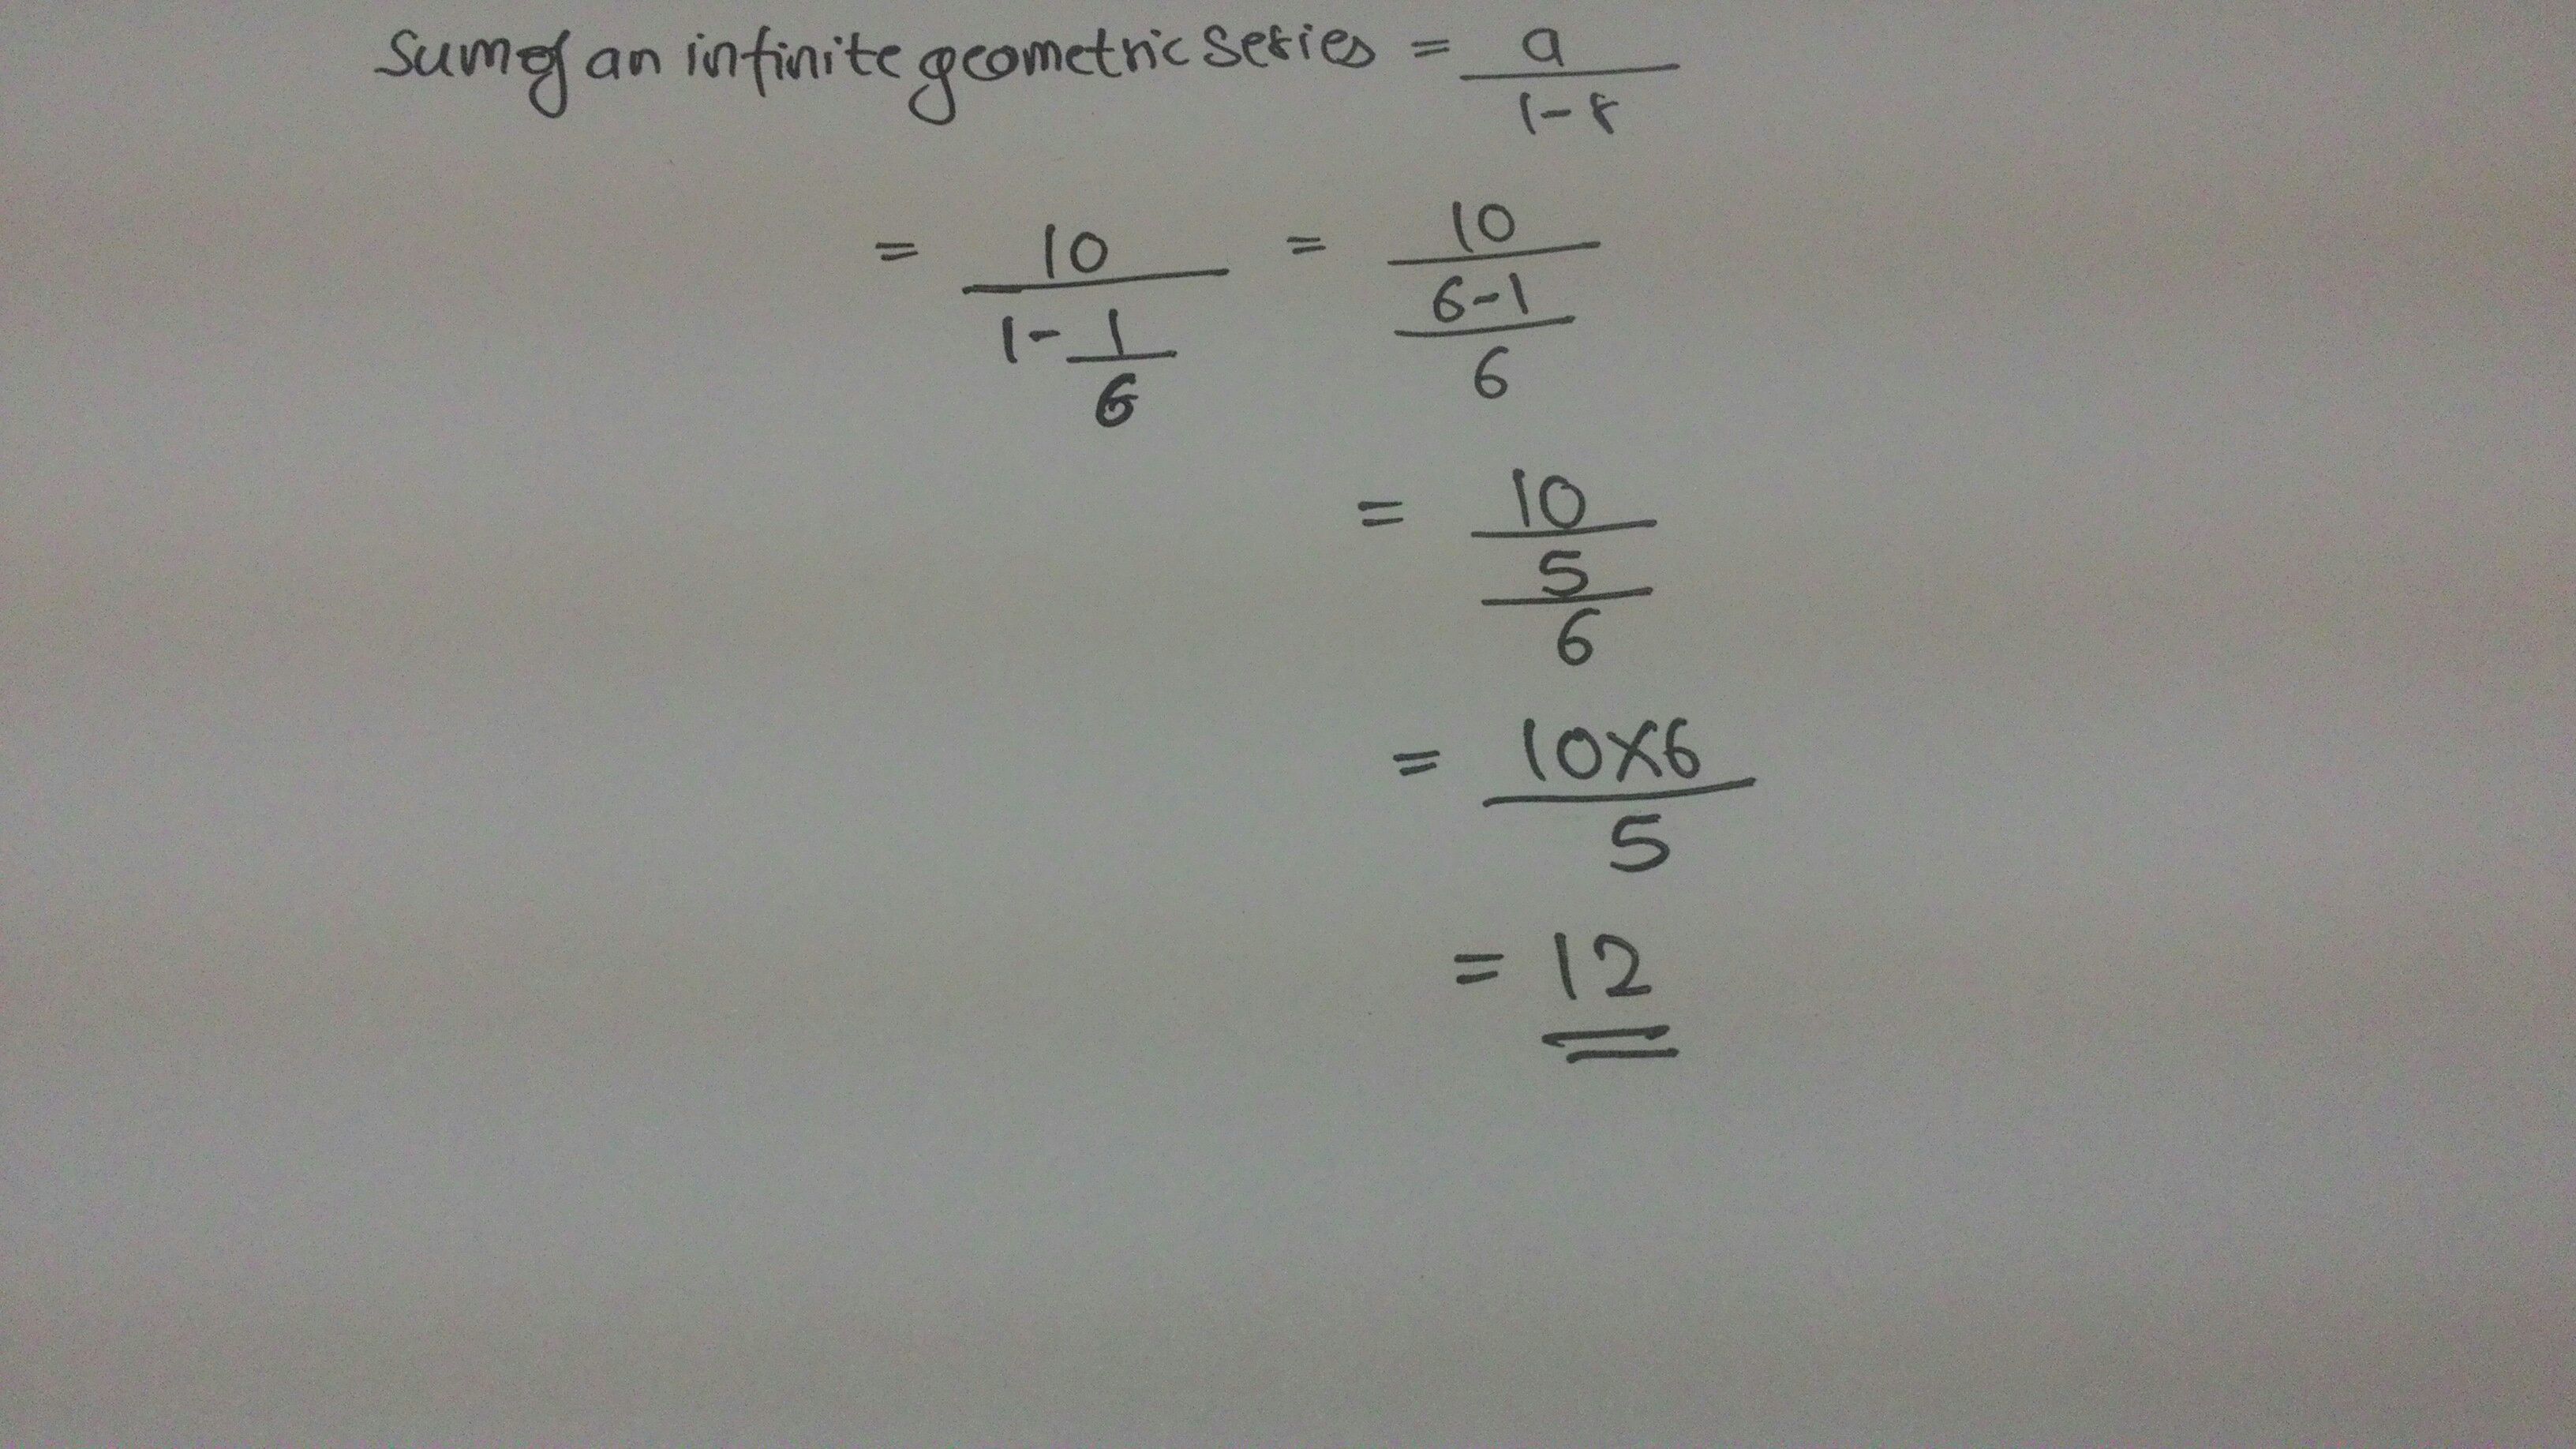 Sum of an infinite geometric series = a/(1-r)
= 10/(1-1/6) = 10/((6-1)/6)
= 10/(5/6)
= (10×6)/5
= 12